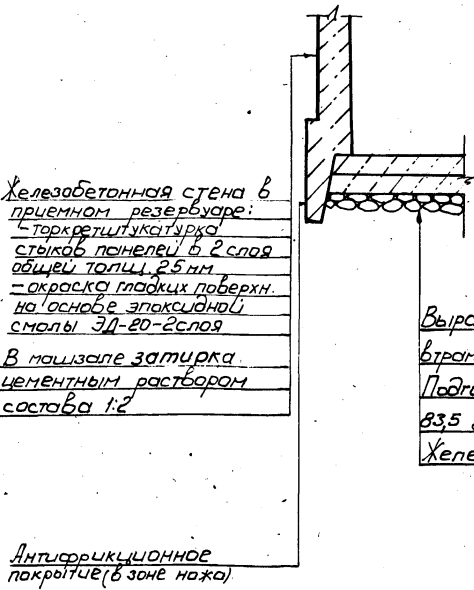 Железобетонная стена в
приемном резервуаре:
-торкретштукатурка
стыков панелей в 2 слоя
общей толщ. 25 мм
-окраска гладких поверхн.
на основе эпоксидной
смолы ЭД-20-2слоя
В машзале затирка
цементным раствором
состава 1:2
Антифрикционное
покрытие (в зоне ножа)
Выра
втрам
Подг
83,5
Желе